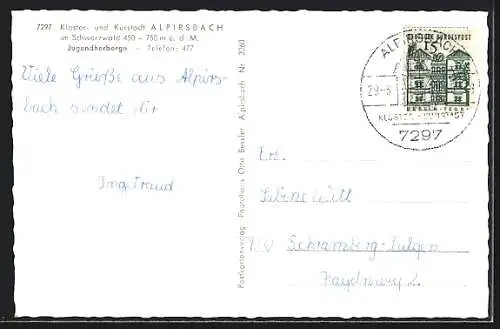 7297 Kloster- und Kurstadt ALPIRSBACH
im Schwarzwald 450 – 750 m ü. d. M.
Jugendherberge - Telefon: 477
Viele Grüße aus Alpirs-
bach sendet dir
Ingetraud
Postkartenverlag Papierhaus Otto Besler Alpirsbach Nr. 2060
ALPIRSBACH
29.-8
KLOSTER
7297
DEUTSCHE BUNDESPOST
15
Frl.
Sabine Witt
Schramberg-Sulgen
Haydnweg 2